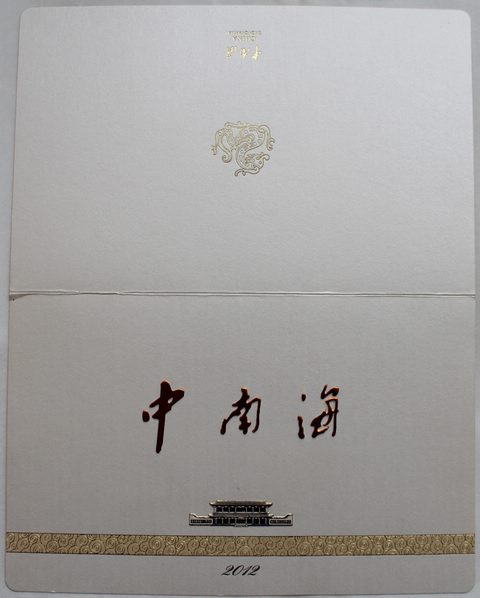 中南海
2012